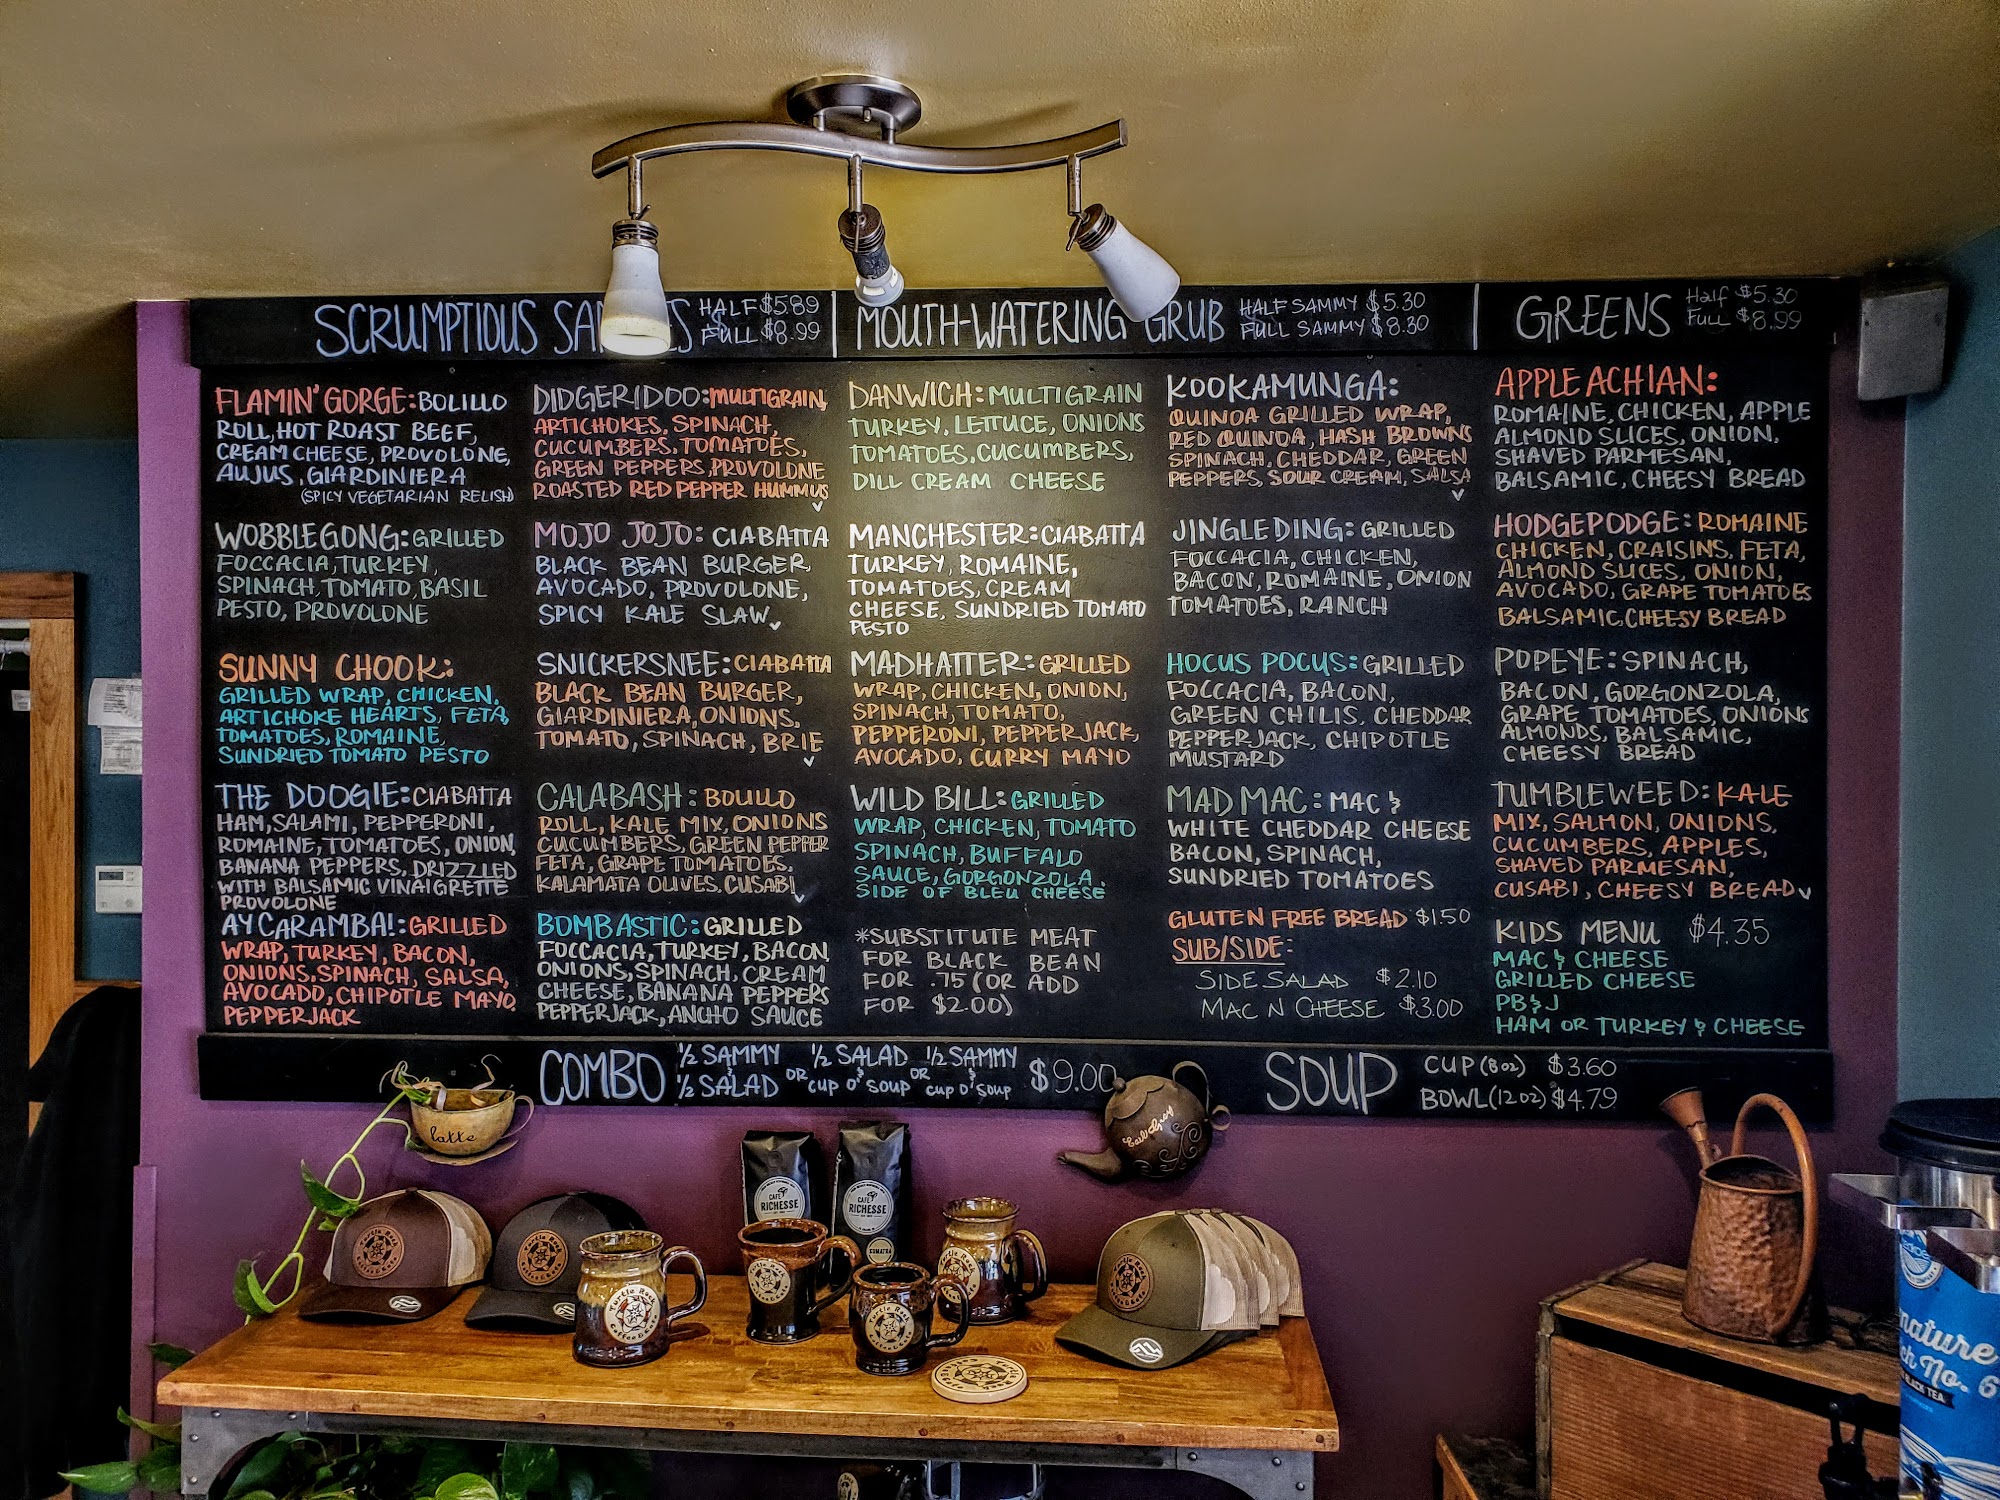 SCRUMPTIOUS
HALF $5.89
FULL $8.99
MOUTH-WATERING GRUB
HALF SAMMY $5.30
FULL SAMMY $8.30
GREENS
Half $5.30
FULL $8.99
FLAMIN' GORGE: BOLILLO
ROLL, HOT ROAST BEEF,
CREAM CHEESE, PROVOLONE,
AUJUS, GIARDINIERA
(SPICY VEGETARIAN RELISH)
WOBBLEGONG: GRILLED
FOCCACIA, TURKEY,
SPINACH, TOMATO, BASIL
PESTO, PROVOLONE
SUNNY CHOOK:
GRILLED WRAP, CHICKEN,
ARTICHOKE HEARTS, FETA,
TOMATOES, ROMAINE,
SUNDRIED TOMATO PESTO
THE DOOGIE: CIABATTA
HAM, SALAMI, PEPPERONI,
ROMAINE, TOMATOES, ONION,
BANANA PEPPERS, DRIZZLED
WITH BALSAMIC VINAIGRETTE
PROVOLONE
AY CARAMBA!: GRILLED
WRAP, TURKEY, BACON,
ONIONS, SPINACH, SALSA,
AVOCADO, CHIPOTLE MAYO,
PEPPERJACK
DIDGERIDOO: MULTIGRAIN,
ARTICHOKES, SPINACH,
CUCUMBERS, TOMATOES,
GREEN PEPPERS, PROVOLONE
ROASTED RED PEPPER HUMMUS
MOJO JOJO: CIABATTA
BLACK BEAN BURGER,
AVOCADO, PROVOLONE,
SPICY KALE SLAW
SNICKERSNEE: CIABATTA
BLACK BEAN BURGER,
GIARDINIERA, ONIONS,
TOMATO, SPINACH, BRIE
CALABASH: BOLILLO
ROLL, KALE MIX, ONIONS
CUCUMBERS, GREEN PEPPER
FETA, GRAPE TOMATOES,
KALAMATA OLIVES, CUSABI
BOMBASTIC: GRILLED
FOCCACIA, TURKEY, BACON,
ONIONS, SPINACH, CREAM
CHEESE, BANANA PEPPERS
PEPPERJACK, ANCHO SAUCE
DANWICH: MULTIGRAIN
TURKEY, LETTUCE, ONIONS
TOMATOES, CUCUMBERS,
DILL CREAM CHEESE
MANCHESTER: CIABATTA
TURKEY, ROMAINE,
TOMATOES, CREAM
CHEESE, SUNDRIED TOMATO
PESTO
MADHATTER: GRILLED
WRAP, CHICKEN, ONION,
SPINACH, TOMATO,
PEPPERONI, PEPPERJACK,
AVOCADO, CURRY MAYO
WILD BILL: GRILLED
WRAP, CHICKEN, TOMATO
SPINACH, BUFFALO
SAUCE, GORGONZOLA,
SIDE OF BLEU CHEESE
*SUBSTITUTE MEAT
FOR BLACK BEAN
FOR .75 (OR ADD
FOR $2.00)
KOOKAMUNGA:
QUINOA GRILLED WRAP,
RED QUINOA, HASH BROWNS
SPINACH, CHEDDAR, GREEN
PEPPERS, SOUR CREAM, SALSA
JINGLEDING: GRILLED
FOCCACIA, CHICKEN,
BACON, ROMAINE, ONION
TOMATOES, RANCH
HOCUS POCUS: GRILLED
FOCCACIA, BACON,
GREEN CHILIS, CHEDDAR
PEPPERJACK, CHIPOTLE
MUSTARD
MAD MAC: MAC &
WHITE CHEDDAR CHEESE
BACON, SPINACH,
SUNDRIED TOMATOES
GLUTEN FREE BREAD $1.50
SUB/SIDE:
SIDE SALAD $2.10
MAC N CHEESE $3.00
APPLEACHIAN:
ROMAINE, CHICKEN, APPLE
ALMOND SLICES, ONION,
SHAVED PARMESAN,
BALSAMIC, CHEESY BREAD
HODGEPODGE: ROMAINE
CHICKEN, CRAISINS, FETA,
ALMOND SLICES, ONION,
AVOCADO, GRAPE TOMATOES
BALSAMIC, CHEESY BREAD
POPEYE: SPINACH,
BACON, GORGONZOLA,
GRAPE TOMATOES, ONIONS
ALMONDS, BALSAMIC,
CHEESY BREAD
TUMBLEWEED: KALE
MIX, SALMON, ONIONS,
CUCUMBERS, APPLES,
SHAVED PARMESAN,
CUSABI, CHEESY BREAD
KIDS MENU $4.35
MAC & CHEESE
GRILLED CHEESE
PB&J
HAM OR TURKEY & CHEESE
COMBO
1/2 SAMMY & 1/2 SALAD OR 1/2 SALAD & CUP O' SOUP OR 1/2 SAMMY & CUP O' SOUP $9.00
SOUP
CUP (8oz) $3.60
BOWL (12oz) $4.79
latte
Earl Grey
CAFÉ
RICHESSE
CAFÉ
RICHESSE
SUMATRA
Turtle Rock
Coffee & Cafe
Turtle Rock
BLACK TEA